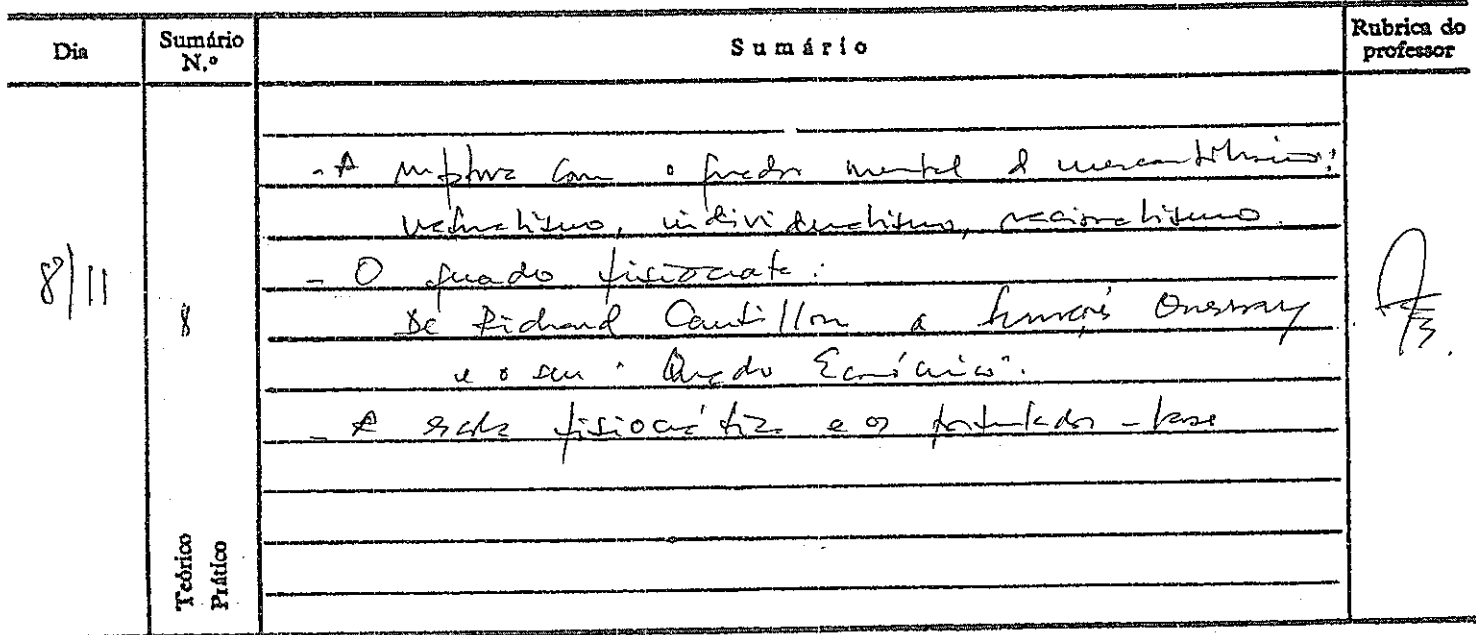 Dia
Sumário N.º
Sumário
Rubrica do professor
- A ruptura com o quadro mental do mercantilismo:
naturalismo, individualismo, racionalismo.
8/11
8
- O quadro fisiocrata:
De Richard Cantillon a François Quesnay
e o seu "Quadro Económico".
- A escola fisiocrática e os postulados-base
Teórico
Prático